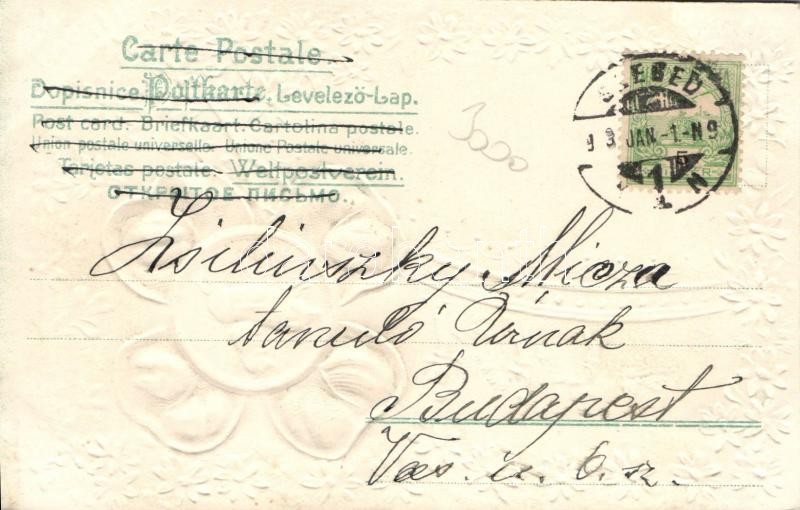 Carte Postale.
Dopisnice Postkarte. Levelező-Lap.
Post card. Briefkaart. Cartolina postale.
Union postale universelle. Unione Postale universale.
Tarjetas postale. Weltpostverein.
ОТКРЫТОЕ ПИСЬМО.
JAN.-1-N9
3000
Zsilinszky Micza
tanuló Úrnak
Budapest
Vas. u. 6. sz.